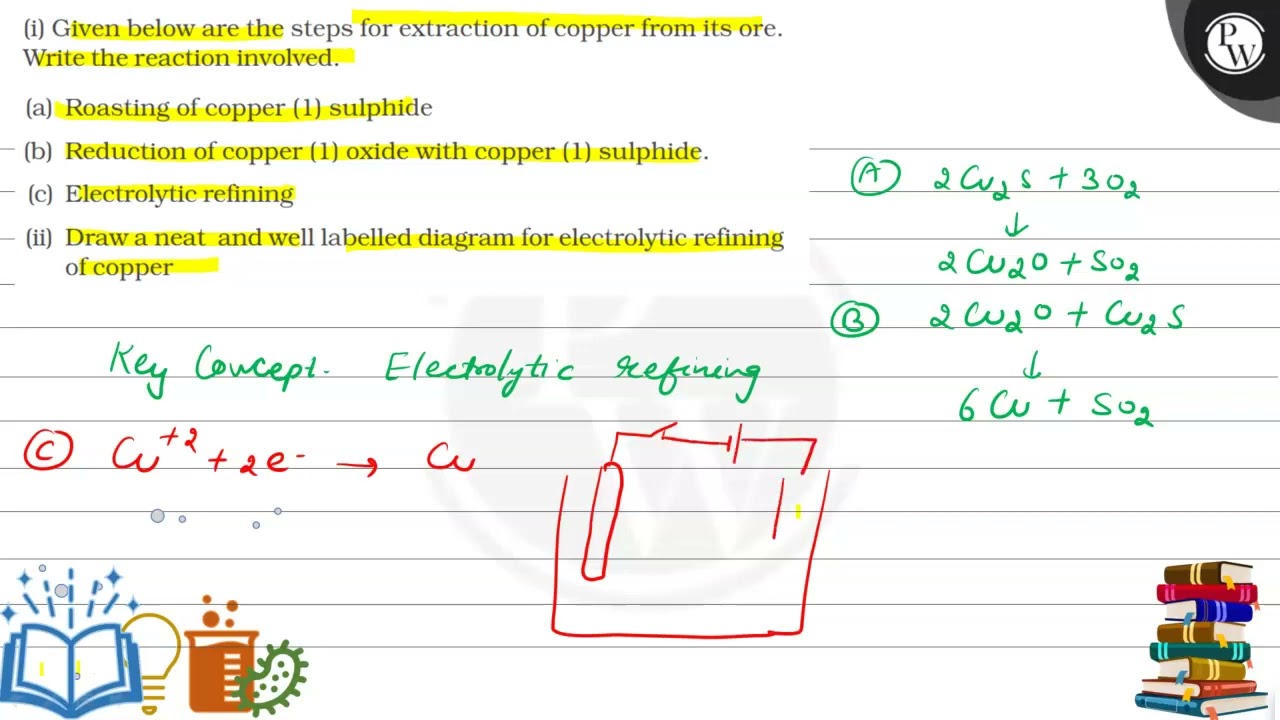 (i) Given below are the steps for extraction of copper from its ore.
Write the reaction involved.
(a) Roasting of copper (1) sulphide
(b) Reduction of copper (1) oxide with copper (1) sulphide.
(c) Electrolytic refining
(ii) Draw a neat and well labelled diagram for electrolytic refining
of copper
PW
Ⓐ 2Cu₂S + 3O₂
↓
2Cu₂O + SO₂
Ⓑ 2Cu₂O + Cu₂S
↓
6Cu + SO₂
Key Concept. Electrolytic refining
Ⓒ Cu⁺² + 2e⁻ → Cu